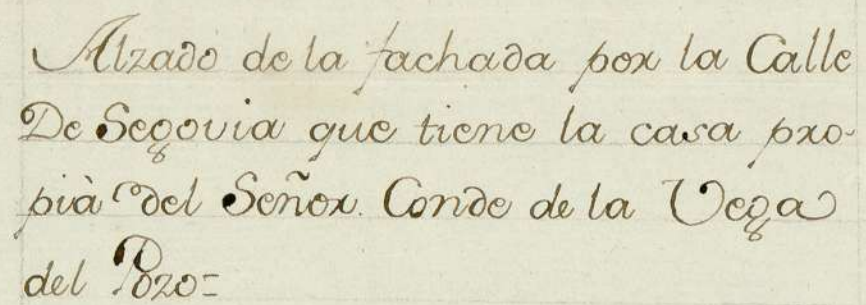 Alzado de la fachada por la Calle
De Segovia que tiene la casa pro-
pià del Señor. Conde de la Vega
del Pozo=